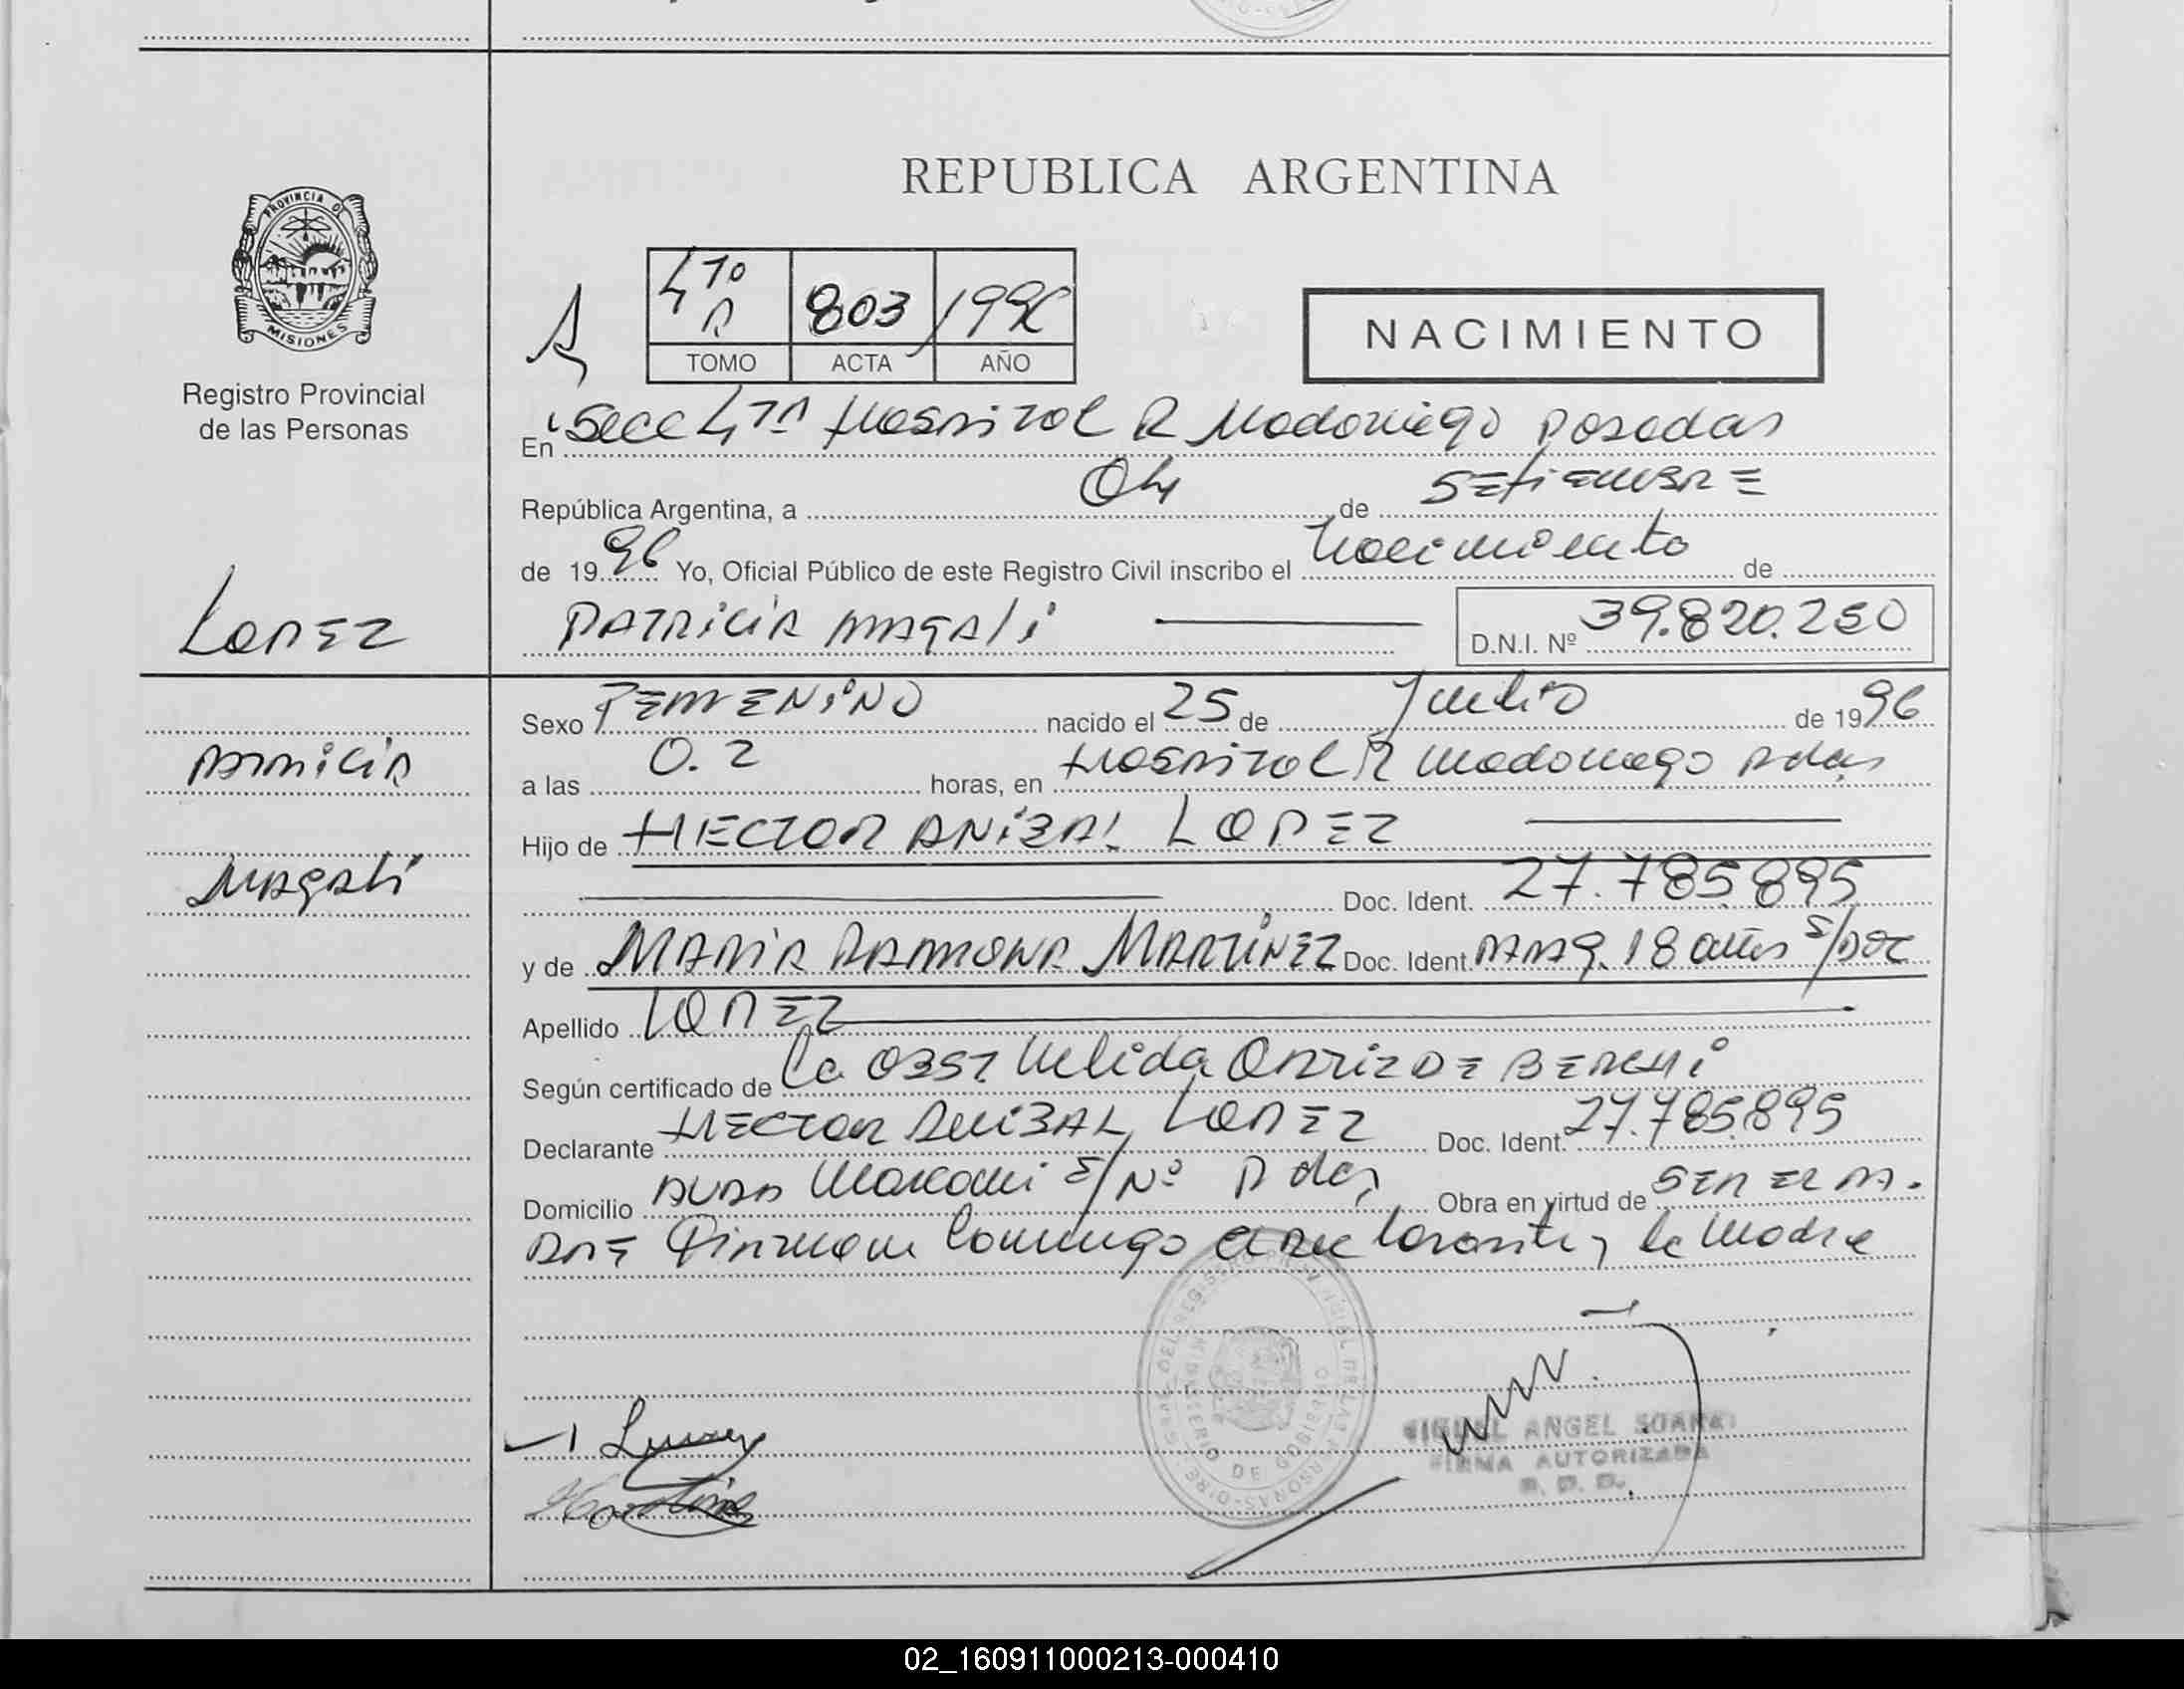 PROVINCIA DE
MISIONES
Registro Provincial
de las Personas
LOPEZ
PATRICIA
MAGALI
REPUBLICA ARGENTINA
A
4TO A 803 1996
TOMO ACTA AÑO
NACIMIENTO
En Secc 4TA Hospital R Madariaga Posadas
República Argentina, a 04 de SETIEMBRE
de 1996 Yo, Oficial Público de este Registro Civil inscribo el Nacimiento de
PATRICIA MAGALI
D.N.I. Nº 39.820.250
Sexo FEMENINO nacido el 25 de Julio de 1996
a las 0.2 horas, en HOSPITAL R Madariaga Pdas
Hijo de HECTOR ANIBAL LOPEZ
Doc. Ident. 27.785.895
y de MARIA RAMONA MARTINEZ Doc. Ident 18 años S/DOC
Apellido LOPEZ
Según certificado de La OBST. Nelida ORTIZ DE
Declarante HECTOR ANIBAL LOPEZ Doc. Ident. 27.785.895
Domicilio S/Nº Pdas Obra en virtud de SER EL PA.
DRE Firman Conmigo el declarante y la Madre
ANGEL
FIRMA AUTORIZADA
02_160911000213-000410